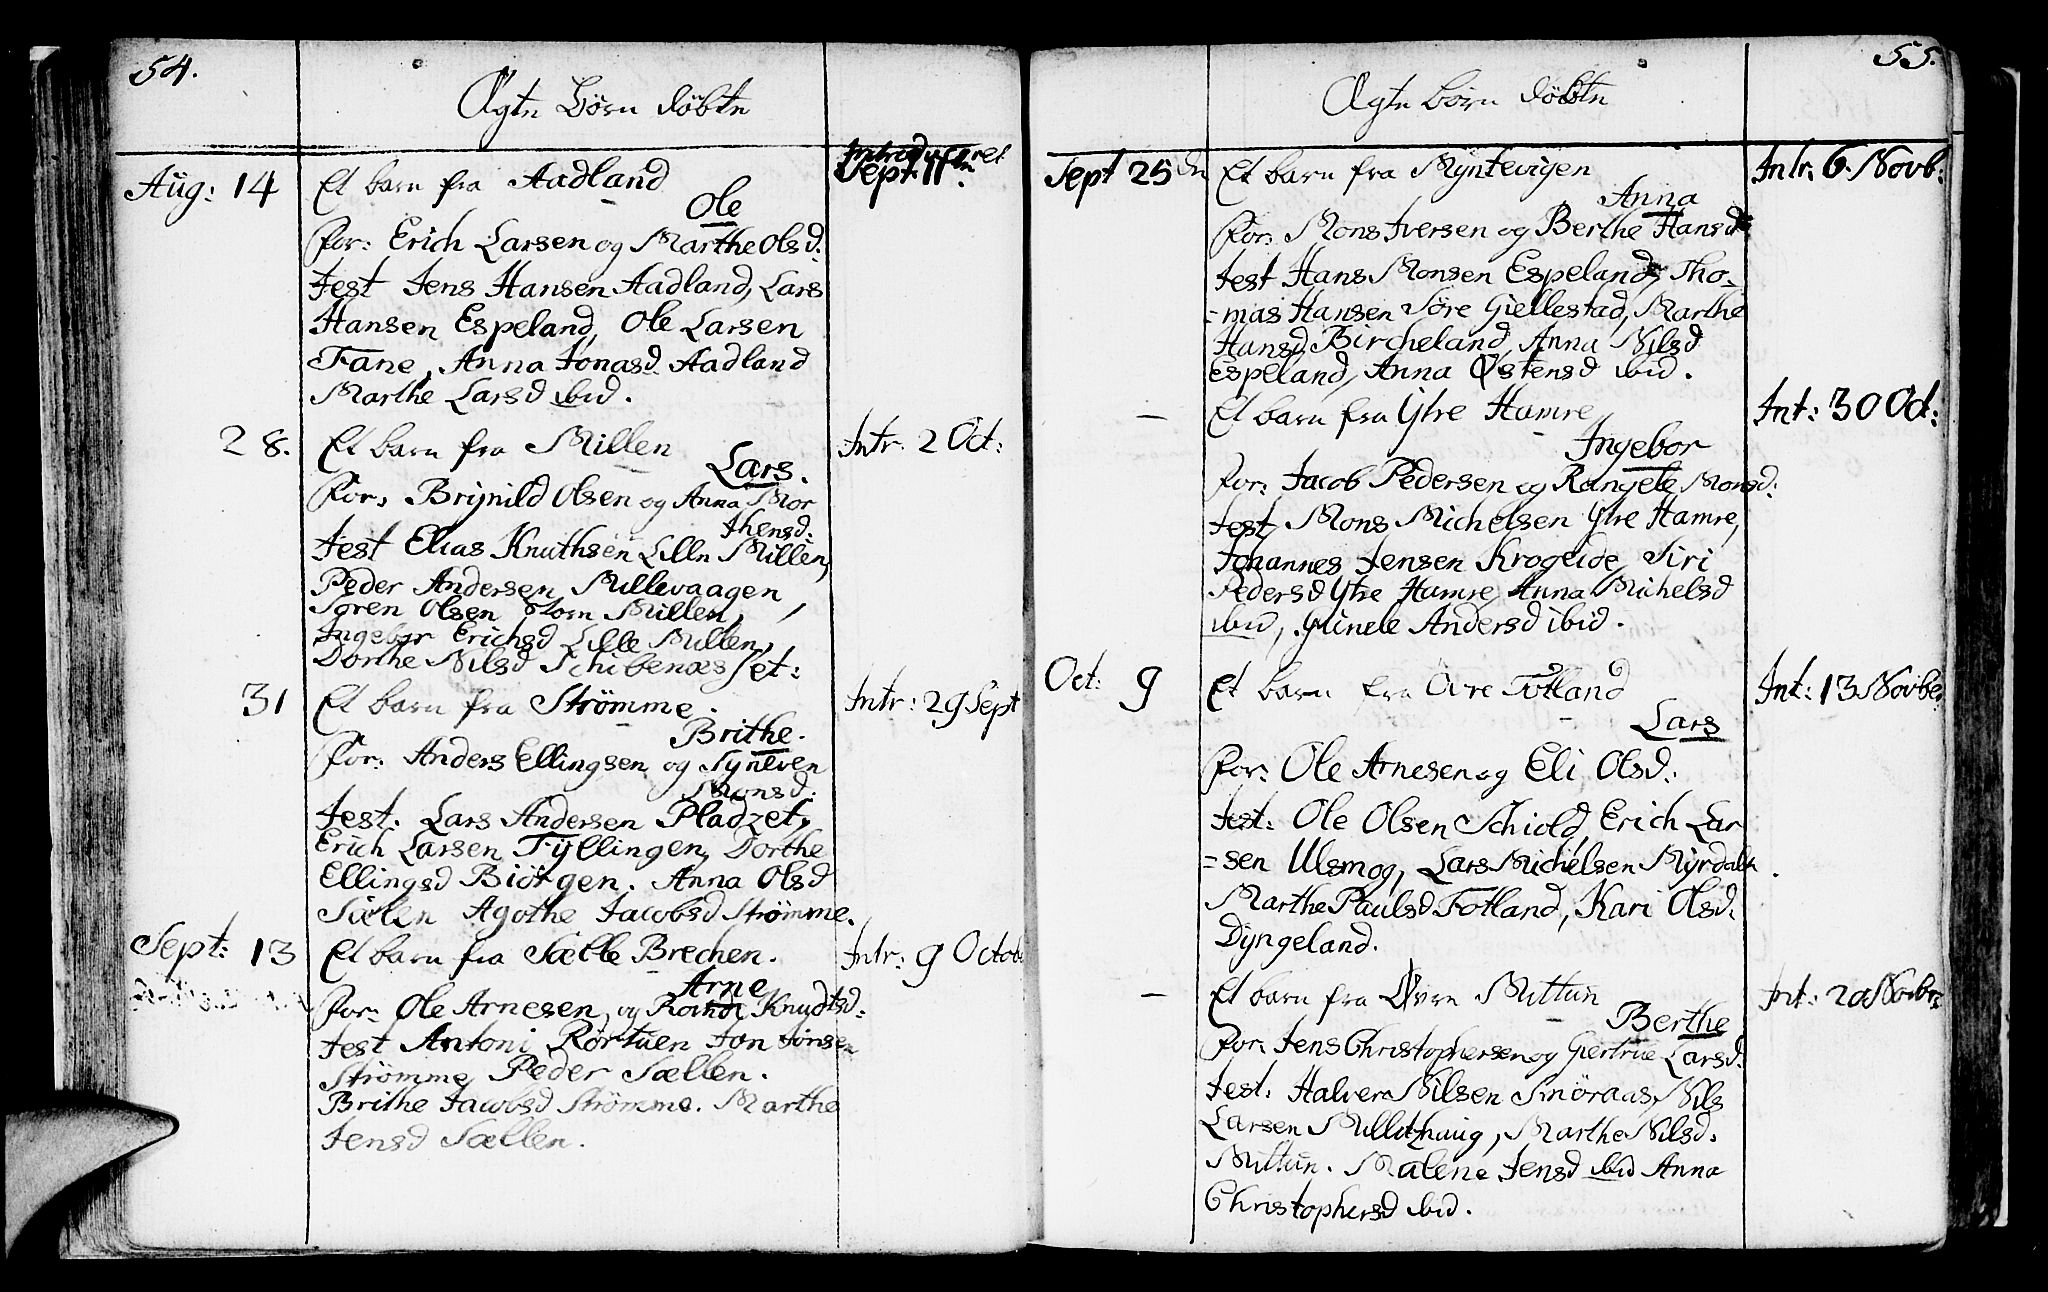 54.
Ægte Børn döbte
Introduceret
Aug: 14 Et barn fra Aadland Sept. 11te
Ole
For: Erich Larsen og Marthe Olsd:
Test Jens Hansen Aadland, Lars
Hansen Espeland, Ole Larsen
Fane, Anna Jonasd Aadland
Marthe Larsd ibid.
28. Et barn fra Millen Intr. 2 Oct:
Lars.
For: Brynild Olsen og Anna Mor
thensd:
Test Elias Knuthsen Lille Millen,
Peder Andersen Millevaagen,
Sören Olsen Store Millen,
Ingebor Erichsd Lille Millen,
Dorthe Nilsd Schibenæsset:
31 Et barn fra Strömme. Intr: 29 Sept
Brithe.
For: Anders Ellingsen og Syneven
Monsd:
Test. Lars Andersen Pladzet,
Erich Larsen Tyllingen, Dorthe
Ellingsd Biörgen. Anna Olsd
Sælen Agothe Jacobsd Strömme.
Sept: 13 Et barn fra Sælle Brechen. Intr: 9 Octob
Arne
For: Ole Arnesen, og Knudtsd:
Test Antoni Rörtuen Jon Jonsen
Strömme, Peder Sællen.
Brithe Jacobsd Strömme. Marthe
Jensd Sællen.
55.
Ægte börn döbte
Sept 25 Et barn fra Myntevigen Intr: 6. Novb:
Anna
For: Mons Iversen og Berthe Hansd
Test Hans Monsen Espeland, Tho-
=mas Hansen Söre Giellestad, Marthe
Hansd Bircheland, Anna Nilsd
Espeland, Anna Østensd ibid.
— Et barn fra Ytre Hamre Int: 30 Oct:
Ingebor
For: Jacob Pedersen og Rangele Monsd:
Test Mons Michelsen Ytre Hamre,
Johannes Jensen Krogeide, Siri
Pedersd Ytre Hamre, Anna Michelsd
ibid, Gunele Andersd ibid.
Oct: 9 Et barn fra Övre Totland Int: 13 Novbe
Lars
For: Ole Arnesen og Eli Olsd:
Test: Ole Olsen Schiold, Erich Lar
=sen Ulsmog, Lars Michelsen Myrdalen.
Marthe Paulsd Totland, Kari Olsd:
Dyngeland.
— Et barn fra Øvre Mittun Int: 20 Novbr:
Berthe
For: Jens Christophersen og Giertrue Larsd:
Test: Halver Nilsen Smöraas, Nils
Larsen Millithaug, Marthe Nilsd.
Mittun. Malene Jensd ibid Anna
Christophersd ibid.